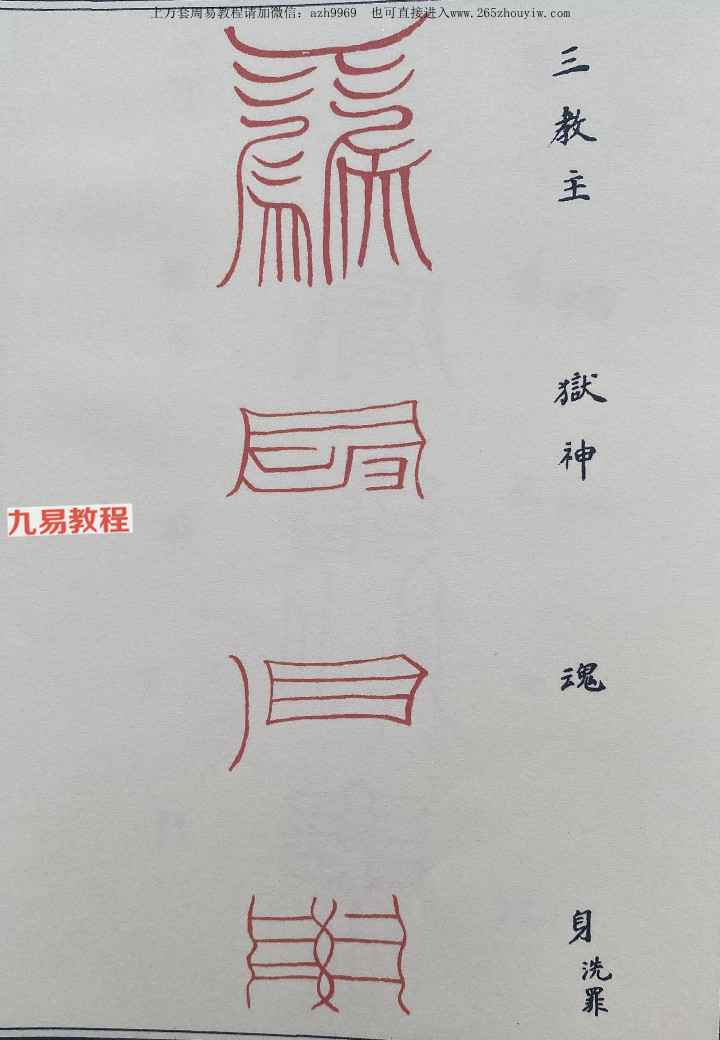 上万套周易教程请加微信：azh9969 也可直接进入www.265zhouyiw.com
三教主
獄神
九易教程
魂
身洗罪